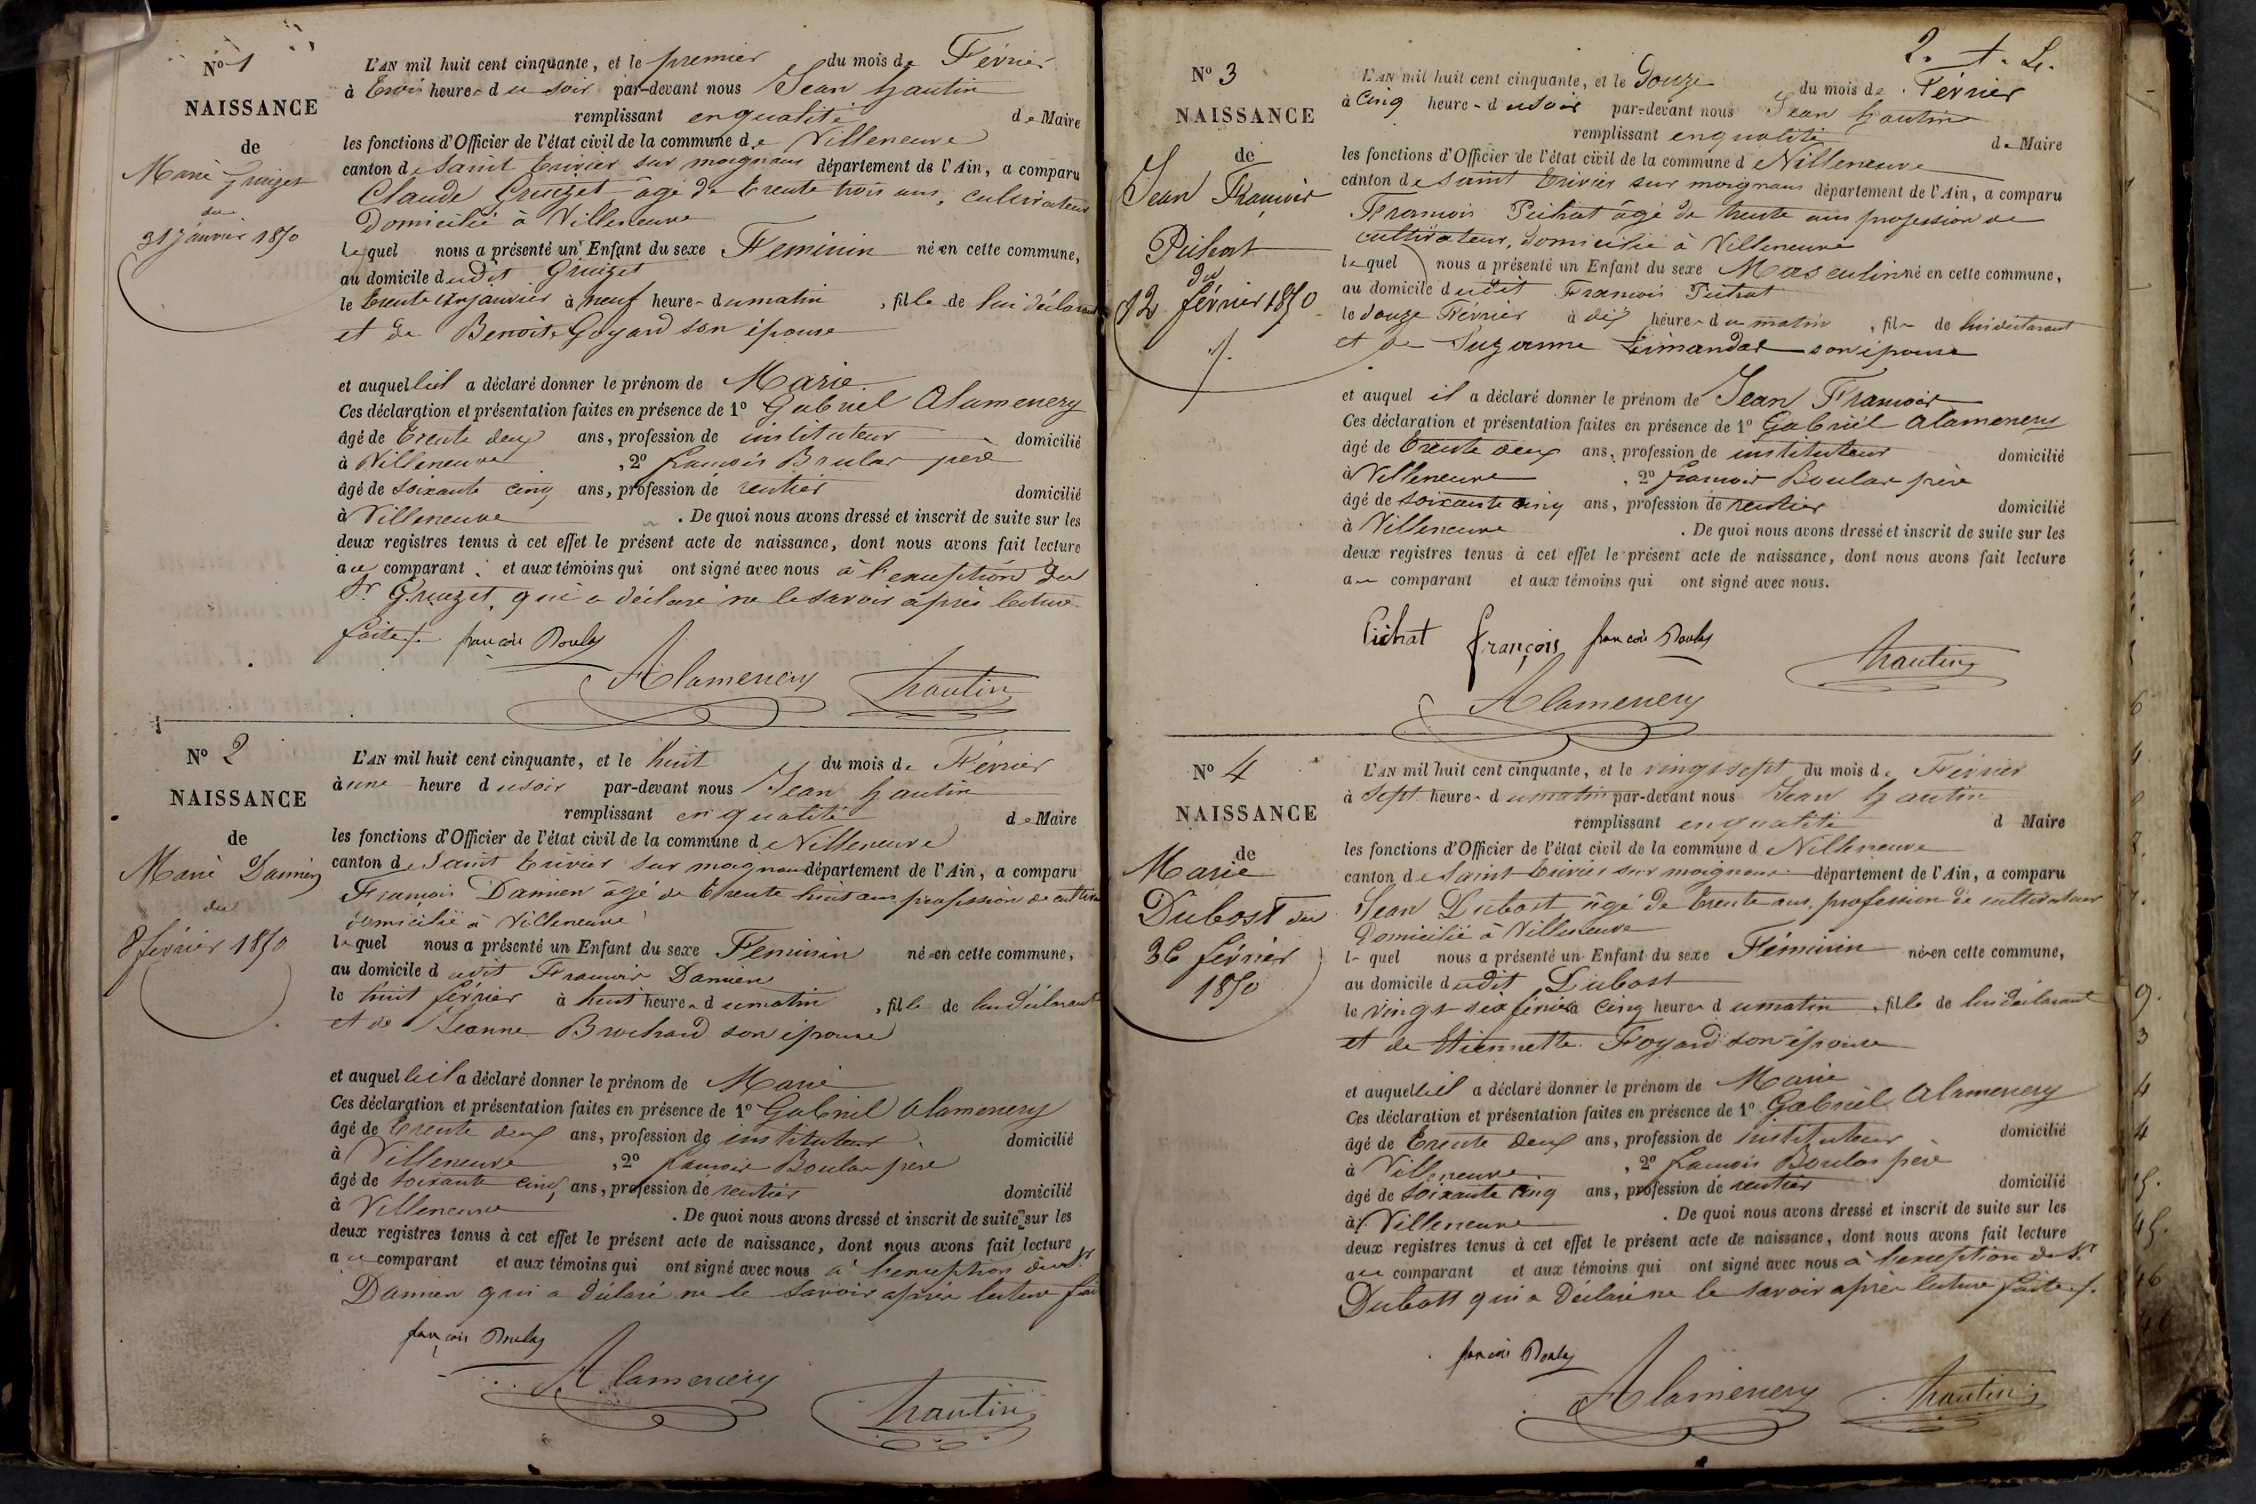 Nº 1
NAISSANCE
de
Marie Gruizet
du
31 janvier 1850
L'AN mil huit cent cinquante, et le premier du mois de Février
à trois heures du soir par-devant nous Jean hautin
remplissant en qualité de Maire
les fonctions d'Officier de l'état civil de la commune de Villeneuve
canton de Saint trivier sur moignans département de l'Ain, a comparu
Claude Gruizet âgé de trente trois ans, cultivateur
Domicilié à Villeneuve
lequel nous a présenté un Enfant du sexe Feminin né en cette commune,
au domicile dudit Gruizet
le trente un janvier à neuf heures du matin, fille de lui déclarant
et de Benoite Goyard son épouse
et auquel il a déclaré donner le prénom de Marie
Ces déclaration et présentation faites en présence de 1º Gabriel Alamenery
âgé de trente deux ans, profession de instituteur domicilié
à Villeneuve, 2º francois Boulas père
âgé de soixante cinq ans, profession de rentier domicilié
à Villeneuve. De quoi nous avons dressé et inscrit de suite sur les
deux registres tenus à cet effet le présent acte de naissance, dont nous avons fait lecture
au comparant et aux témoins qui ont signé avec nous à l'exception du
Sr Gruizet, qui a déclaré ne le savoir après lecture
faite francois Boulas
Alamenery hautin
Nº 2
NAISSANCE
de
Marie Damien
du
8 février 1850
L'AN mil huit cent cinquante, et le huit du mois de Février
à une heure du soir par-devant nous Jean hautin
remplissant en qualité de Maire
les fonctions d'Officier de l'état civil de la commune de Villeneuve
canton de Saint trivier sur moignans département de l'Ain, a comparu
François Damien âgé de trente huit ans profession de
domicilié à Villeneuve
lequel nous a présenté un Enfant du sexe Feminin né en cette commune,
au domicile dudit François Damien
le huit février à huit heures du matin, fille de lui déclarant
et de Jeanne Brochard son épouse
et auquel il a déclaré donner le prénom de Marie
Ces déclaration et présentation faites en présence de 1º Gabriel Alamenery
âgé de trente deux ans, profession de instituteur domicilié
à Villeneuve, 2º francois Boulas père
âgé de soixante cinq ans, profession de rentier domicilié
à Villeneuve. De quoi nous avons dressé et inscrit de suite sur les
deux registres tenus à cet effet le présent acte de naissance, dont nous avons fait lecture
au comparant et aux témoins qui ont signé avec nous à l'exception du Sr
Damien qui a déclaré ne le savoir après lecture
francois Boulas
Alamenery
hautin
Nº 3
NAISSANCE
de
Jean François
Pichat
du
12 février 1850
L'AN mil huit cent cinquante, et le Douze du mois de Février
à cinq heures du soir par-devant nous Jean hautin
remplissant en qualité de Maire
les fonctions d'Officier de l'état civil de la commune de Villeneuve
canton de Saint trivier sur moignans département de l'Ain, a comparu
François Pichat âgé de trente ans profession de
cultivateur, domicilié à Villeneuve
lequel nous a présenté un Enfant du sexe Masculin né en cette commune,
au domicile dudit François Pichat
le douze Février à dix heures du matin, fils de lui déclarant
et de Suzanne son épouse
et auquel il a déclaré donner le prénom de Jean François
Ces déclaration et présentation faites en présence de 1º Gabriel Alamenery
âgé de trente deux ans, profession de instituteur domicilié
à Villeneuve, 2º francois Boulas père
âgé de soixante cinq ans, profession de rentier domicilié
à Villeneuve. De quoi nous avons dressé et inscrit de suite sur les
deux registres tenus à cet effet le présent acte de naissance, dont nous avons fait lecture
au comparant et aux témoins qui ont signé avec nous.
Pichat françois francois Boulas
hautin
Alamenery
Nº 4
NAISSANCE
de
Marie
Dubost du
26 février
1850
L'AN mil huit cent cinquante, et le vingt sept du mois de Février
à sept heures du matin par-devant nous Jean hautin
remplissant en qualité d Maire
les fonctions d'Officier de l'état civil de la commune d Villeneuve
canton de Saint trivier sur moignans département de l'Ain, a comparu
Jean Dubost âgé de trente ans, profession de cultivateur
Domicilié à Villeneuve
lequel nous a présenté un Enfant du sexe Féminin né en cette commune,
au domicile dudit Dubost
le vingt six février à cinq heures du matin, fille de lui déclarant
et de Etiennette Foyard son épouse
et auquel il a déclaré donner le prénom de Marie
Ces déclaration et présentation faites en présence de 1º Gabriel Alamenery
âgé de trente deux ans, profession de instituteur domicilié
à Villeneuve, 2º francois Boulas père
âgé de soixante cinq ans, profession de rentier domicilié
à Villeneuve. De quoi nous avons dressé et inscrit de suite sur les
deux registres tenus à cet effet le présent acte de naissance, dont nous avons fait lecture
au comparant et aux témoins qui ont signé avec nous à l'exception du Sr
Dubost qui a déclaré ne le savoir après lecture faite
francois Boulas
Alamenery hautin